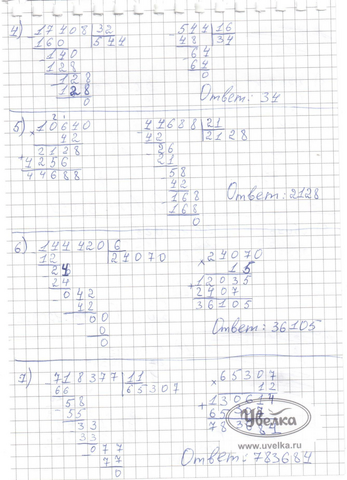 4) 17408 | 32
160 | 544
140
128
128
128
0
544 | 16
48 | 34
64
64
0
Ответ: 34
5) × 10640
42
+ 2128
4256
44688
44688 | 21
42 | 2128
26
21
58
42
168
168
0
Ответ: 2128
6) 144420 | 6
12 | 24070
24
24
042
42
00
0
0
× 24070
15
+ 12035
2407
36105
Ответ: 36105
7) 718377 | 11
66 | 65307
58
55
33
33
077
77
0
× 65307
12
+ 130614
65307
783684
Увелка
www.uvelka.ru
Ответ: 783684